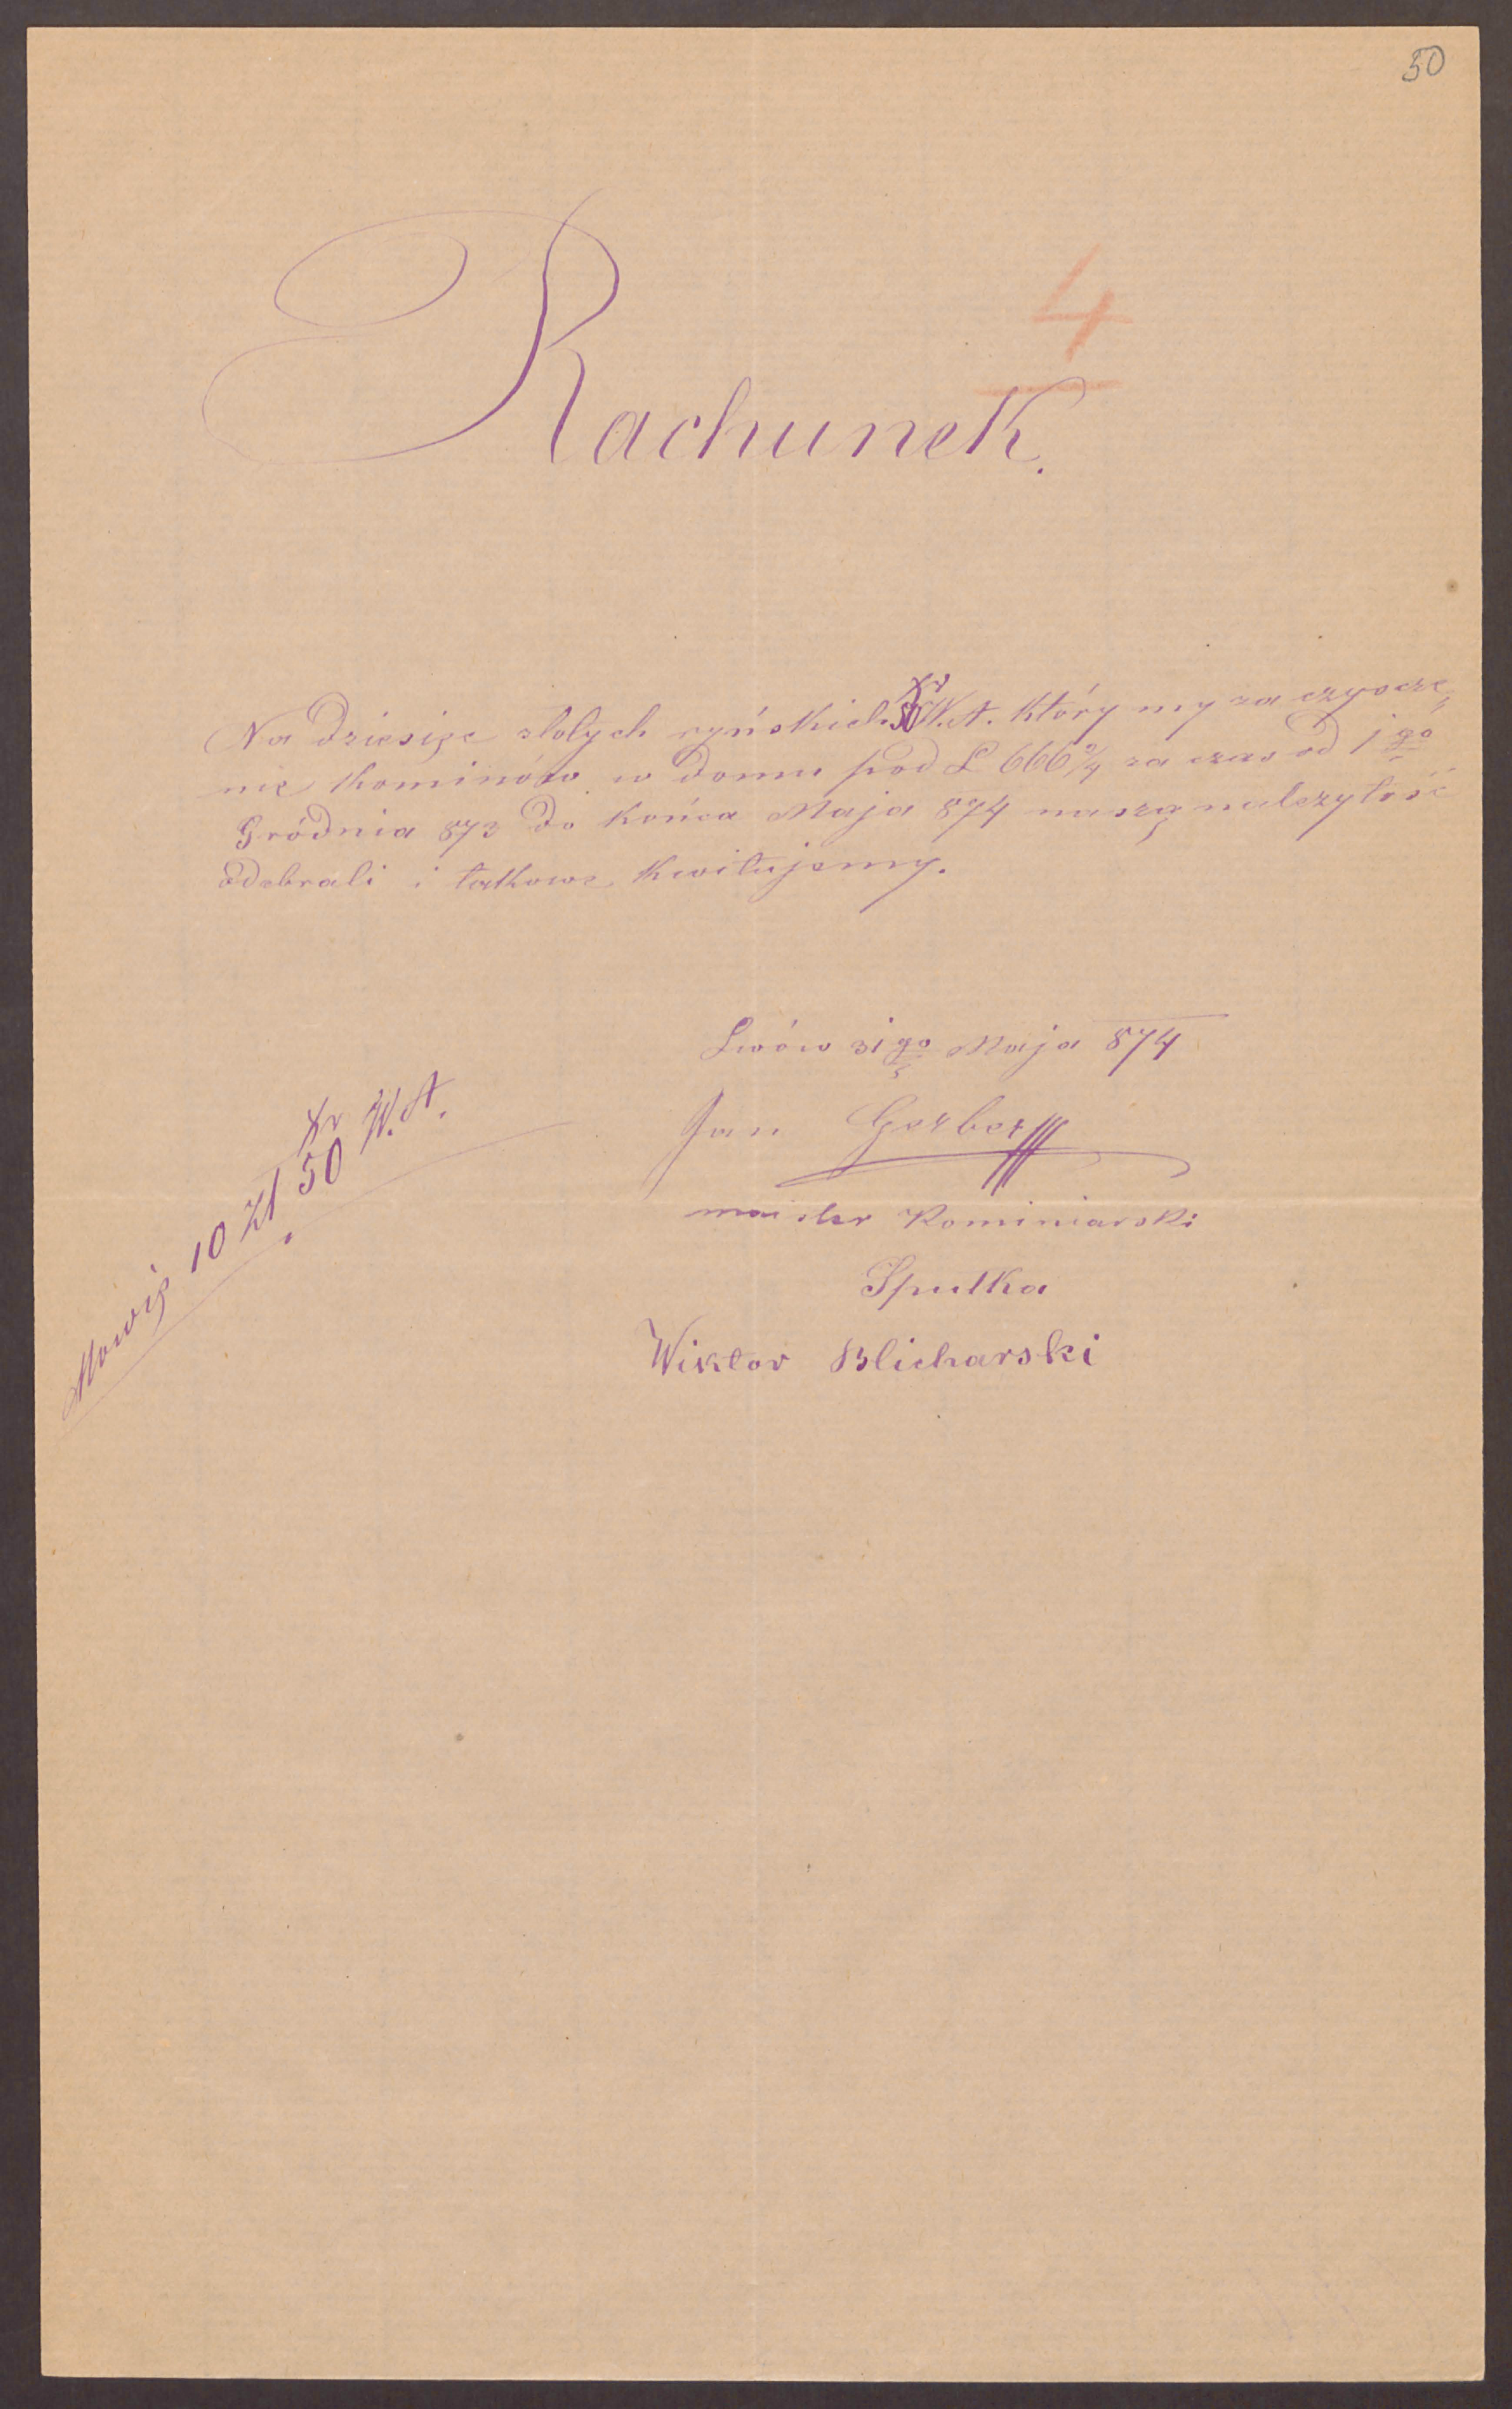 50
4
Rachunek.
Na dziesięc złotych ryńskich 50 Xr W.A. który my za czyszcze
nie kominów w domu pod L 666 2/4 za czas od 1go
Gródnia 873 do końca Maja 874 naszą należytość
odebrali i takowe kwitujemy.
Lwów 31go Maja 874
Jan Gerber
majster Kominiarski
Spulka
Wiktor Blicharski
Mowię 10 Zł 50 Xr W.A.